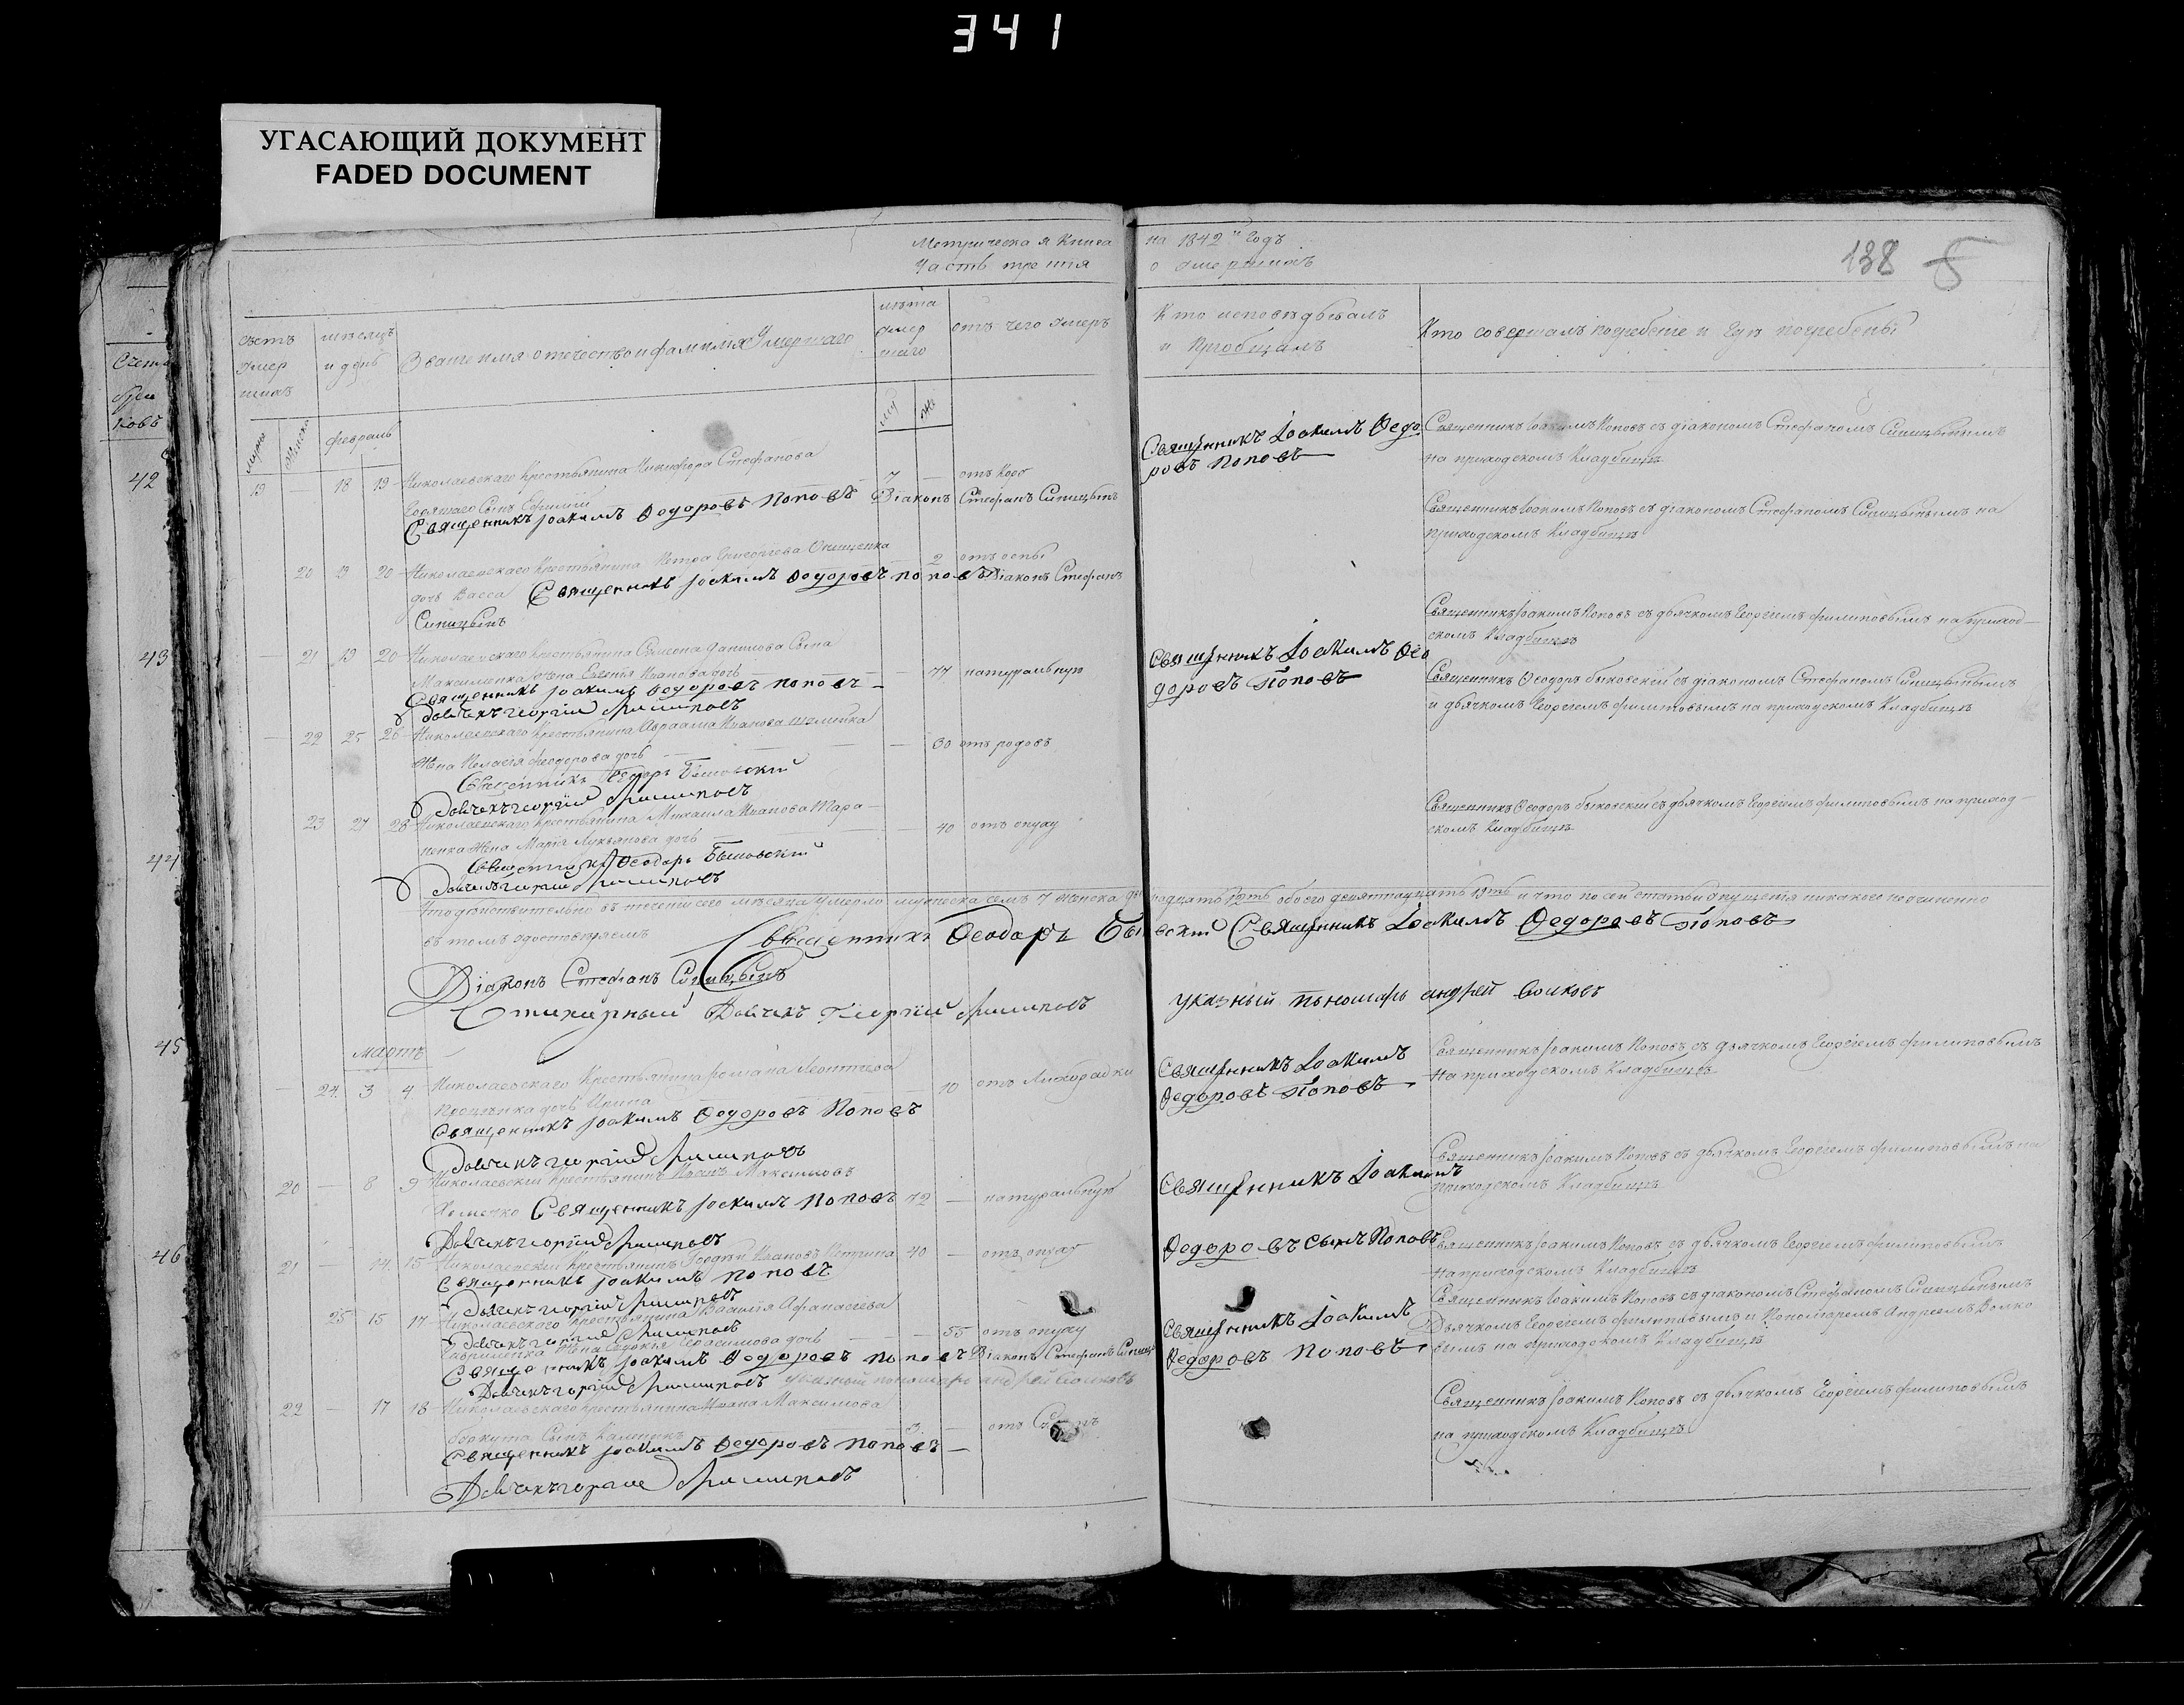 341
УГАСАЮЩИЙ ДОКУМЕНТ
FADED DOCUMENT
Метрическая Книга на 1842 й Годъ
Часть третія о умершихъ
138
счетъ умер шихъ
мѣсяцъ и день
Званіе имя отечество и фамилія Умершаго
лѣта умер шаго
отъ чего умеръ
Кто исповѣдывалъ и Пріобщалъ
Кто совершалъ погребеніе и гдѣ погребены
мужск
женска
февраль
му
же
19 18 19 Николаевскаго Крестьянина Никифора Стефанова
сынъ 7 — отъ Кору
Священникъ Іоакимъ Федоровъ Поповъ Діаконъ Стефанъ Синицынъ
Священникъ Іоакимъ Федо
ровъ Поповъ
Священникъ Іоакимъ Поповъ съ діакономъ Стефаномъ Синицынымъ
на приходскомъ Кладбищѣ
20 19 20 Николаевскаго Крестьянина Петра Григоріева Онищенка
дочь Васса 2 отъ оспы
Священникъ Іоакимъ Федоровъ Поповъ Діаконъ Стефанъ
Синицынъ
Священникъ Іоакимъ Поповъ съ діакономъ Стефаномъ Синицынымъ на
приходскомъ Кладбищѣ
— 21 19 20 Николаевскаго Крестьянина Симеона Данилова Сына
Максименка жена Евгенія Иванова дочь — 77 натуральную
Священникъ Іоакимъ Федоровъ Поповъ
Дьячекъ Георгій Филиповъ
Священникъ Іоакимъ Фео
доровъ Поповъ
Священникъ Іоакимъ Поповъ съ дьячкомъ Георгіемъ Филиповымъ на приход-
скомъ Кладбищѣ
— 22 25 26 Николаевскаго Крестьянина Авраама Иванова
Жена Пелагія Феодорова дочь — 30 отъ родовъ
Священникъ Феодоръ Быковскій
Дьячекъ Георгій Филиповъ
Священникъ Феодоръ Быковскій съ діакономъ Стефаномъ Синицынымъ
и дьячкомъ Георгіемъ Филиповымъ на приходскомъ Кладбищѣ
23 27 28 Николаевскаго Крестьянина Михаила Иванова Тара-
ненка Жена Марія Лукьянова дочь — 40 отъ опуху
Священникъ Феодоръ Быковскій
Дьячекъ Георгій Филиповъ
Священникъ Феодоръ Быковскій съ дьячкомъ Георгіемъ Филиповымъ на приход-
скомъ Кладбищѣ
Что дѣйствительно въ теченіи сего мѣсяца умерло мужеска семь 7 женска двенадцать 12ть обоего девятнадцать 19ть и что по сей статьи опущенія никакого не учинено
въ томъ удостовѣряемъ
Священникъ Феодоръ Быковскій Священникъ Іоакимъ Федоровъ Поповъ
Діаконъ Стефанъ Синицынъ
Стихарный Дьячекъ Георгій Филиповъ указный пономарь Андрей Волковъ
мартъ
— 24 3 4 Николаевскаго Крестьянина Романа Леонтіева
дочь Ирина 10 отъ Лихорадки
Священникъ Іоакимъ Федоровъ Поповъ
Дьячекъ Георгій Филиповъ
Священникъ Іоакимъ
Федоровъ Поповъ
Священникъ Іоакимъ Поповъ съ дьячкомъ Георгіемъ Филиповымъ
на приходскомъ Кладбищѣ
20 — 8 9 Николаевскій Крестьянинъ Иванъ Максимовъ
72 — натуральную
Священникъ Іоакимъ Поповъ
Дьячекъ Георгій Филиповъ
Священникъ Іоакимъ
Федоровъ сынъ Поповъ
Священникъ Іоакимъ Поповъ съ дьячкомъ Георгіемъ Филиповымъ на
приходскомъ Кладбищѣ
21 — 14 15 Николаевскій Крестьянинъ Ивановъ 40 — отъ опуху
Священникъ Іоакимъ Поповъ
Дьячекъ Георгій Филиповъ
Священникъ Іоакимъ Поповъ съ дьячкомъ Георгіемъ Филиповымъ
на приходскомъ Кладбищѣ
25 15 17 Николаевскаго Крестьянина Василія Афанасіева
Дьячекъ Георгій Филиповъ
Гавриленка Жена Евдокія Герасимова дочь — 55 отъ опуху
Священникъ Іоакимъ Федоровъ Поповъ Діаконъ Стефанъ Синиц
Дьячекъ Георгій Филиповъ указный пономарь Андрей Волковъ
Священникъ Іоакимъ
Федоровъ Поповъ
Священникъ Іоакимъ Поповъ съ діакономъ Стефаномъ Синицынымъ
Дьячкомъ Георгіемъ Филиповымъ и Пономаремъ Андреемъ Волко
вымъ на приходскомъ Кладбищѣ
22 — 17 18 Николаевскаго Крестьянина Ивана Максимова
Сынъ 3 отъ
Священникъ Іоакимъ Федоровъ Поповъ
Дьячекъ Георгій Филиповъ
Священникъ Іоакимъ Поповъ съ дьячкомъ Георгіемъ Филиповымъ
на приходскомъ Кладбищѣ
Счетъ
42
43
44
45
46